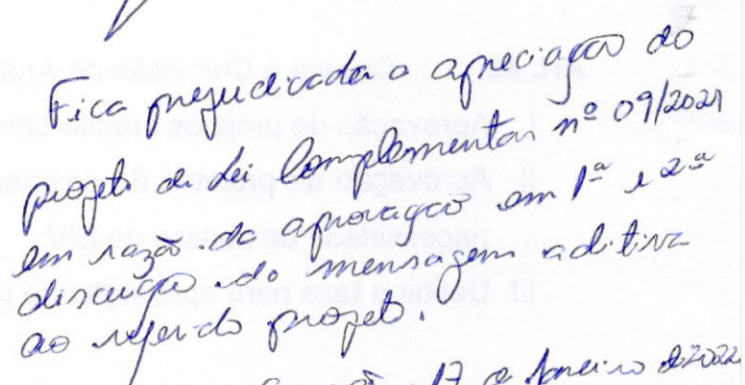 Fica prejudicada a apreciação do
projeto de Lei Complementar nº 09/2021
em razão da aprovação em 1ª e 2ª
discussão da mensagem aditiva
ao referido projeto.
17 de Janeiro de 2022